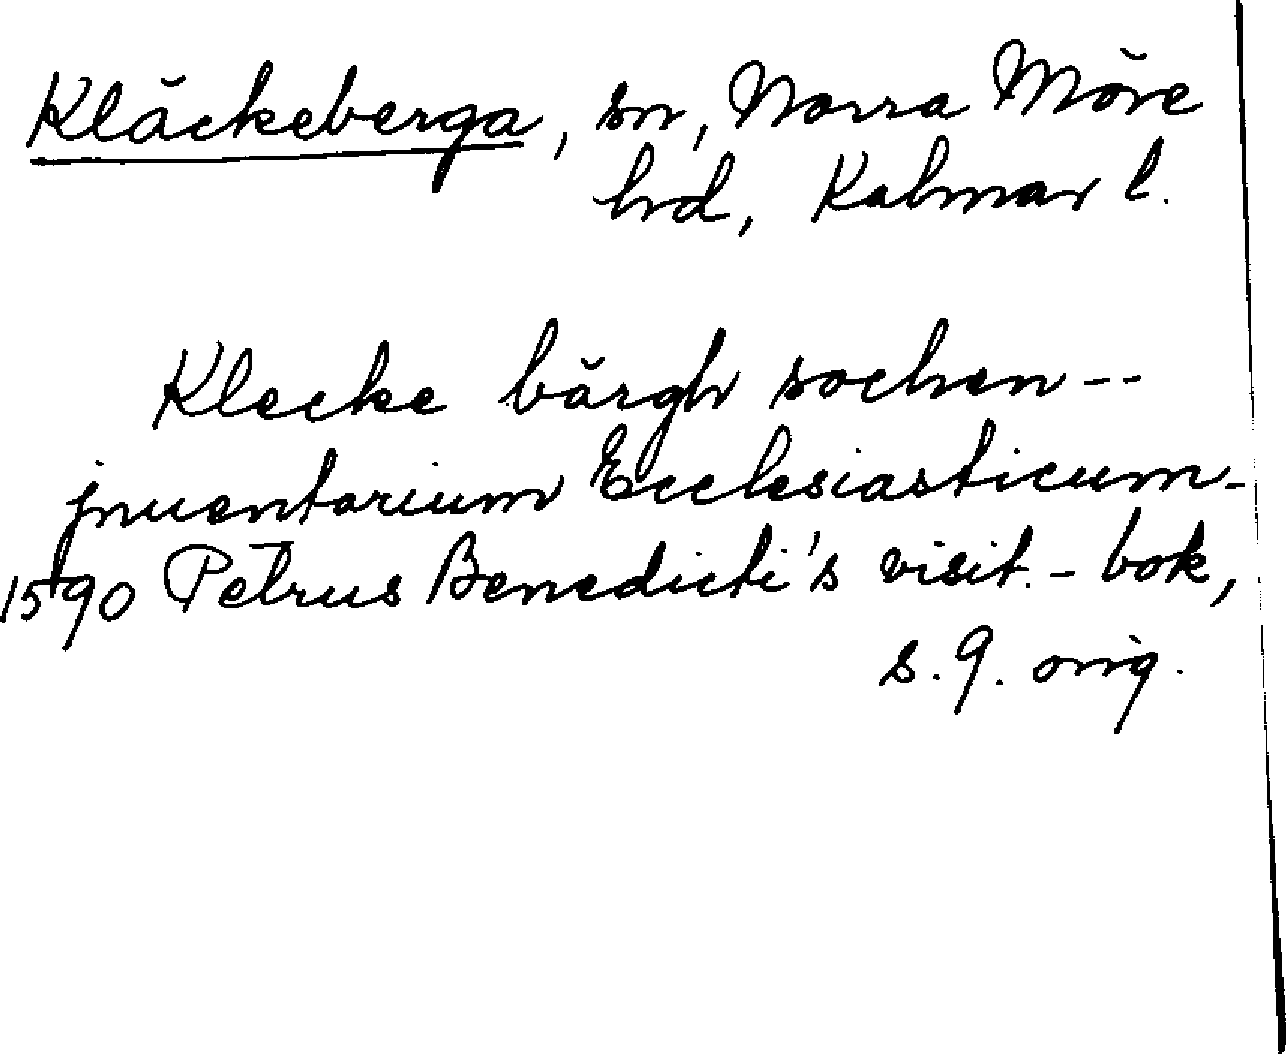 Kläckeberga, sn, Norra Möre
hrd, Kalmar l.
Klecke bärgh sochen--
jnuentarium Ecclesiasticum-
1590 Petrus Benedicti's visit.-bok,
s. 9. orig.